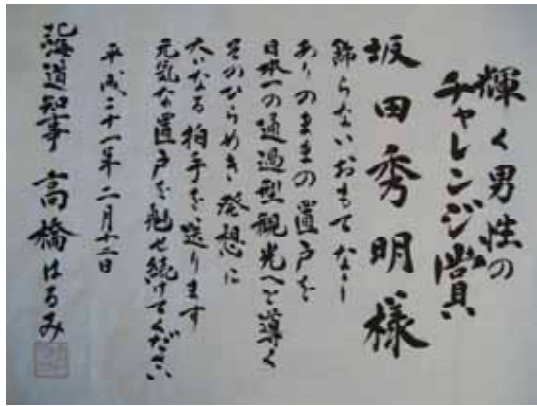 輝く男性の
チャレンジ賞
坂田秀明様
飾らないおもてなし
ありのままの置戸を
日本一の通過型観光へと導く
そのひらめき発想に
大いなる拍手を送ります
元気な置戸を魅せ続けてください
平成二十一年二月十二日
北海道知事 高橋はるみ